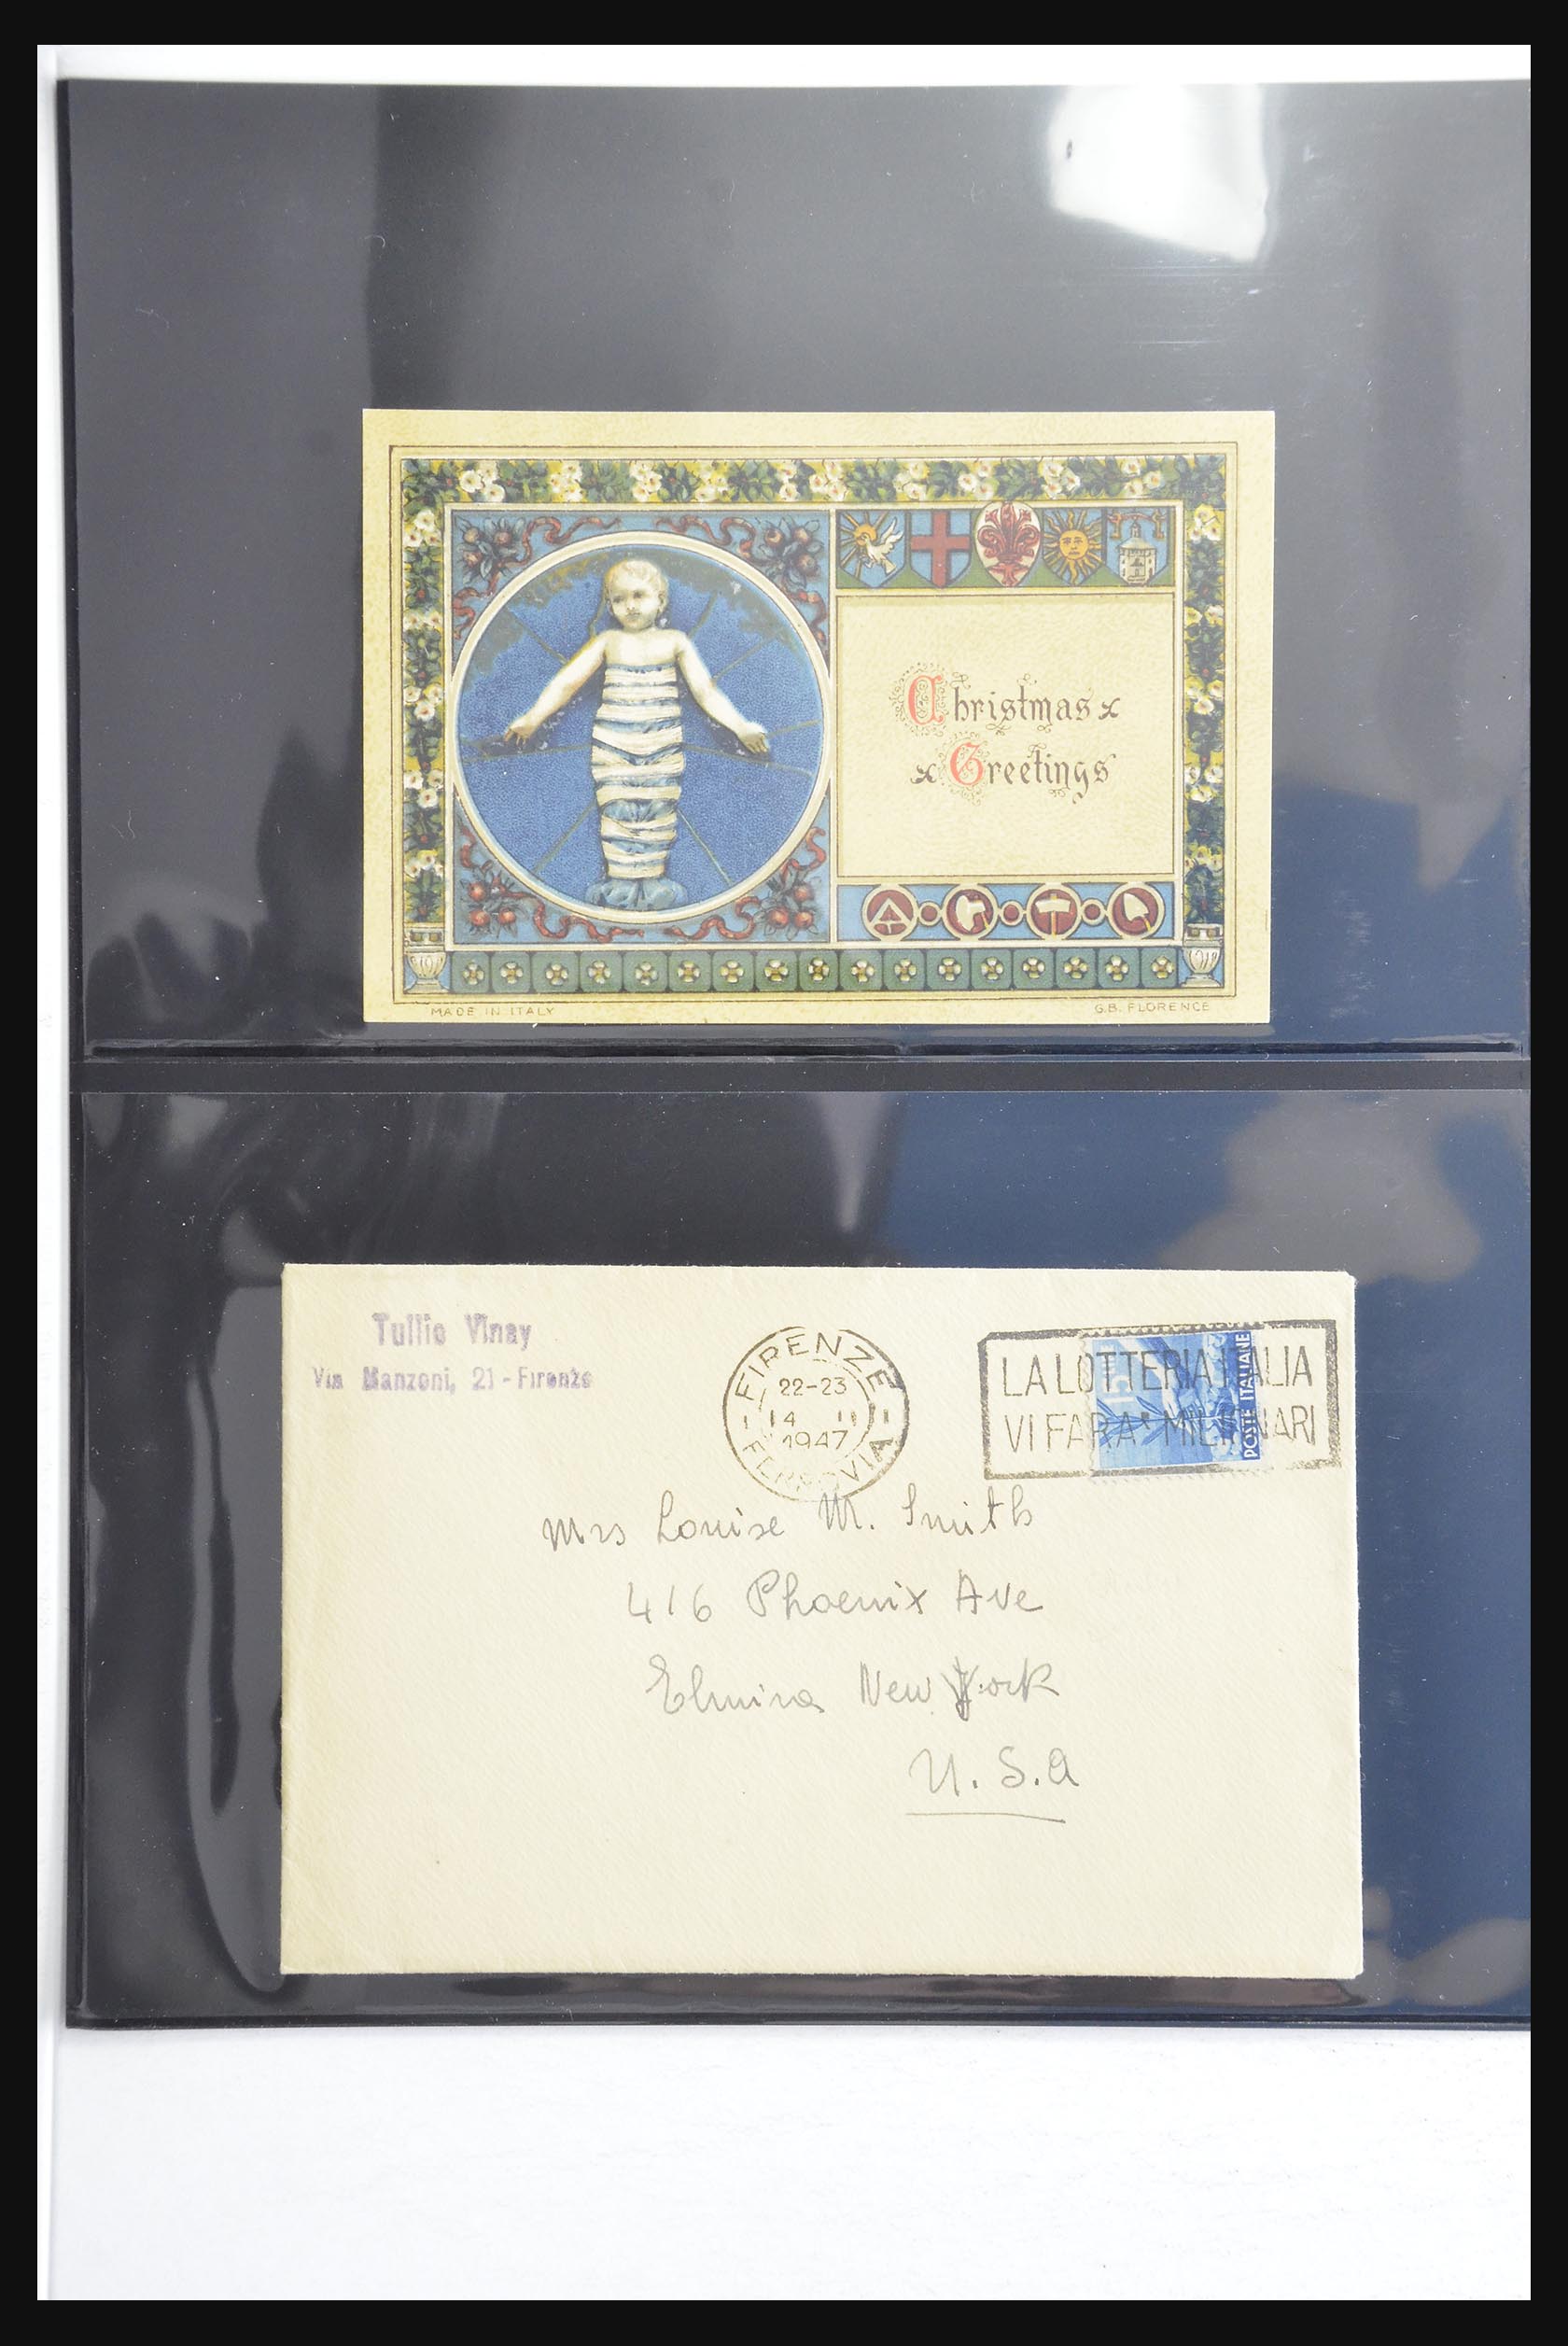 Christmas
Greetings
MADE IN ITALY
G.B. FLORENCE
Tullio Vinay
Via Manzoni, 21 - Firenze
FIRENZE
22-23
14 11
1947
FERROVIA
LA LOTTERIA ITALIA
VI FARA' MILIONARI
15
POSTE ITALIANE
Mrs Louise M. Smith
416 Phoenix Ave
Elmira New York
U.S.A